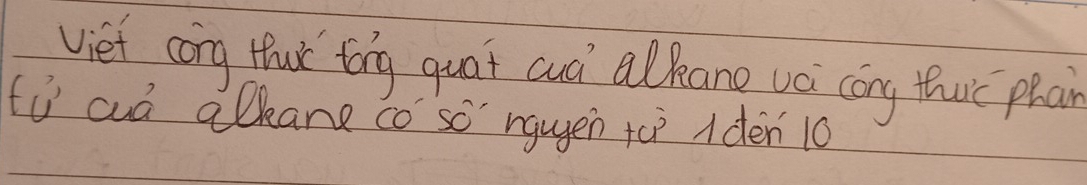 Viết công thức tổng quát của alkane và công thức phân
tử của alkane có số nguyên tử 1 đến 10